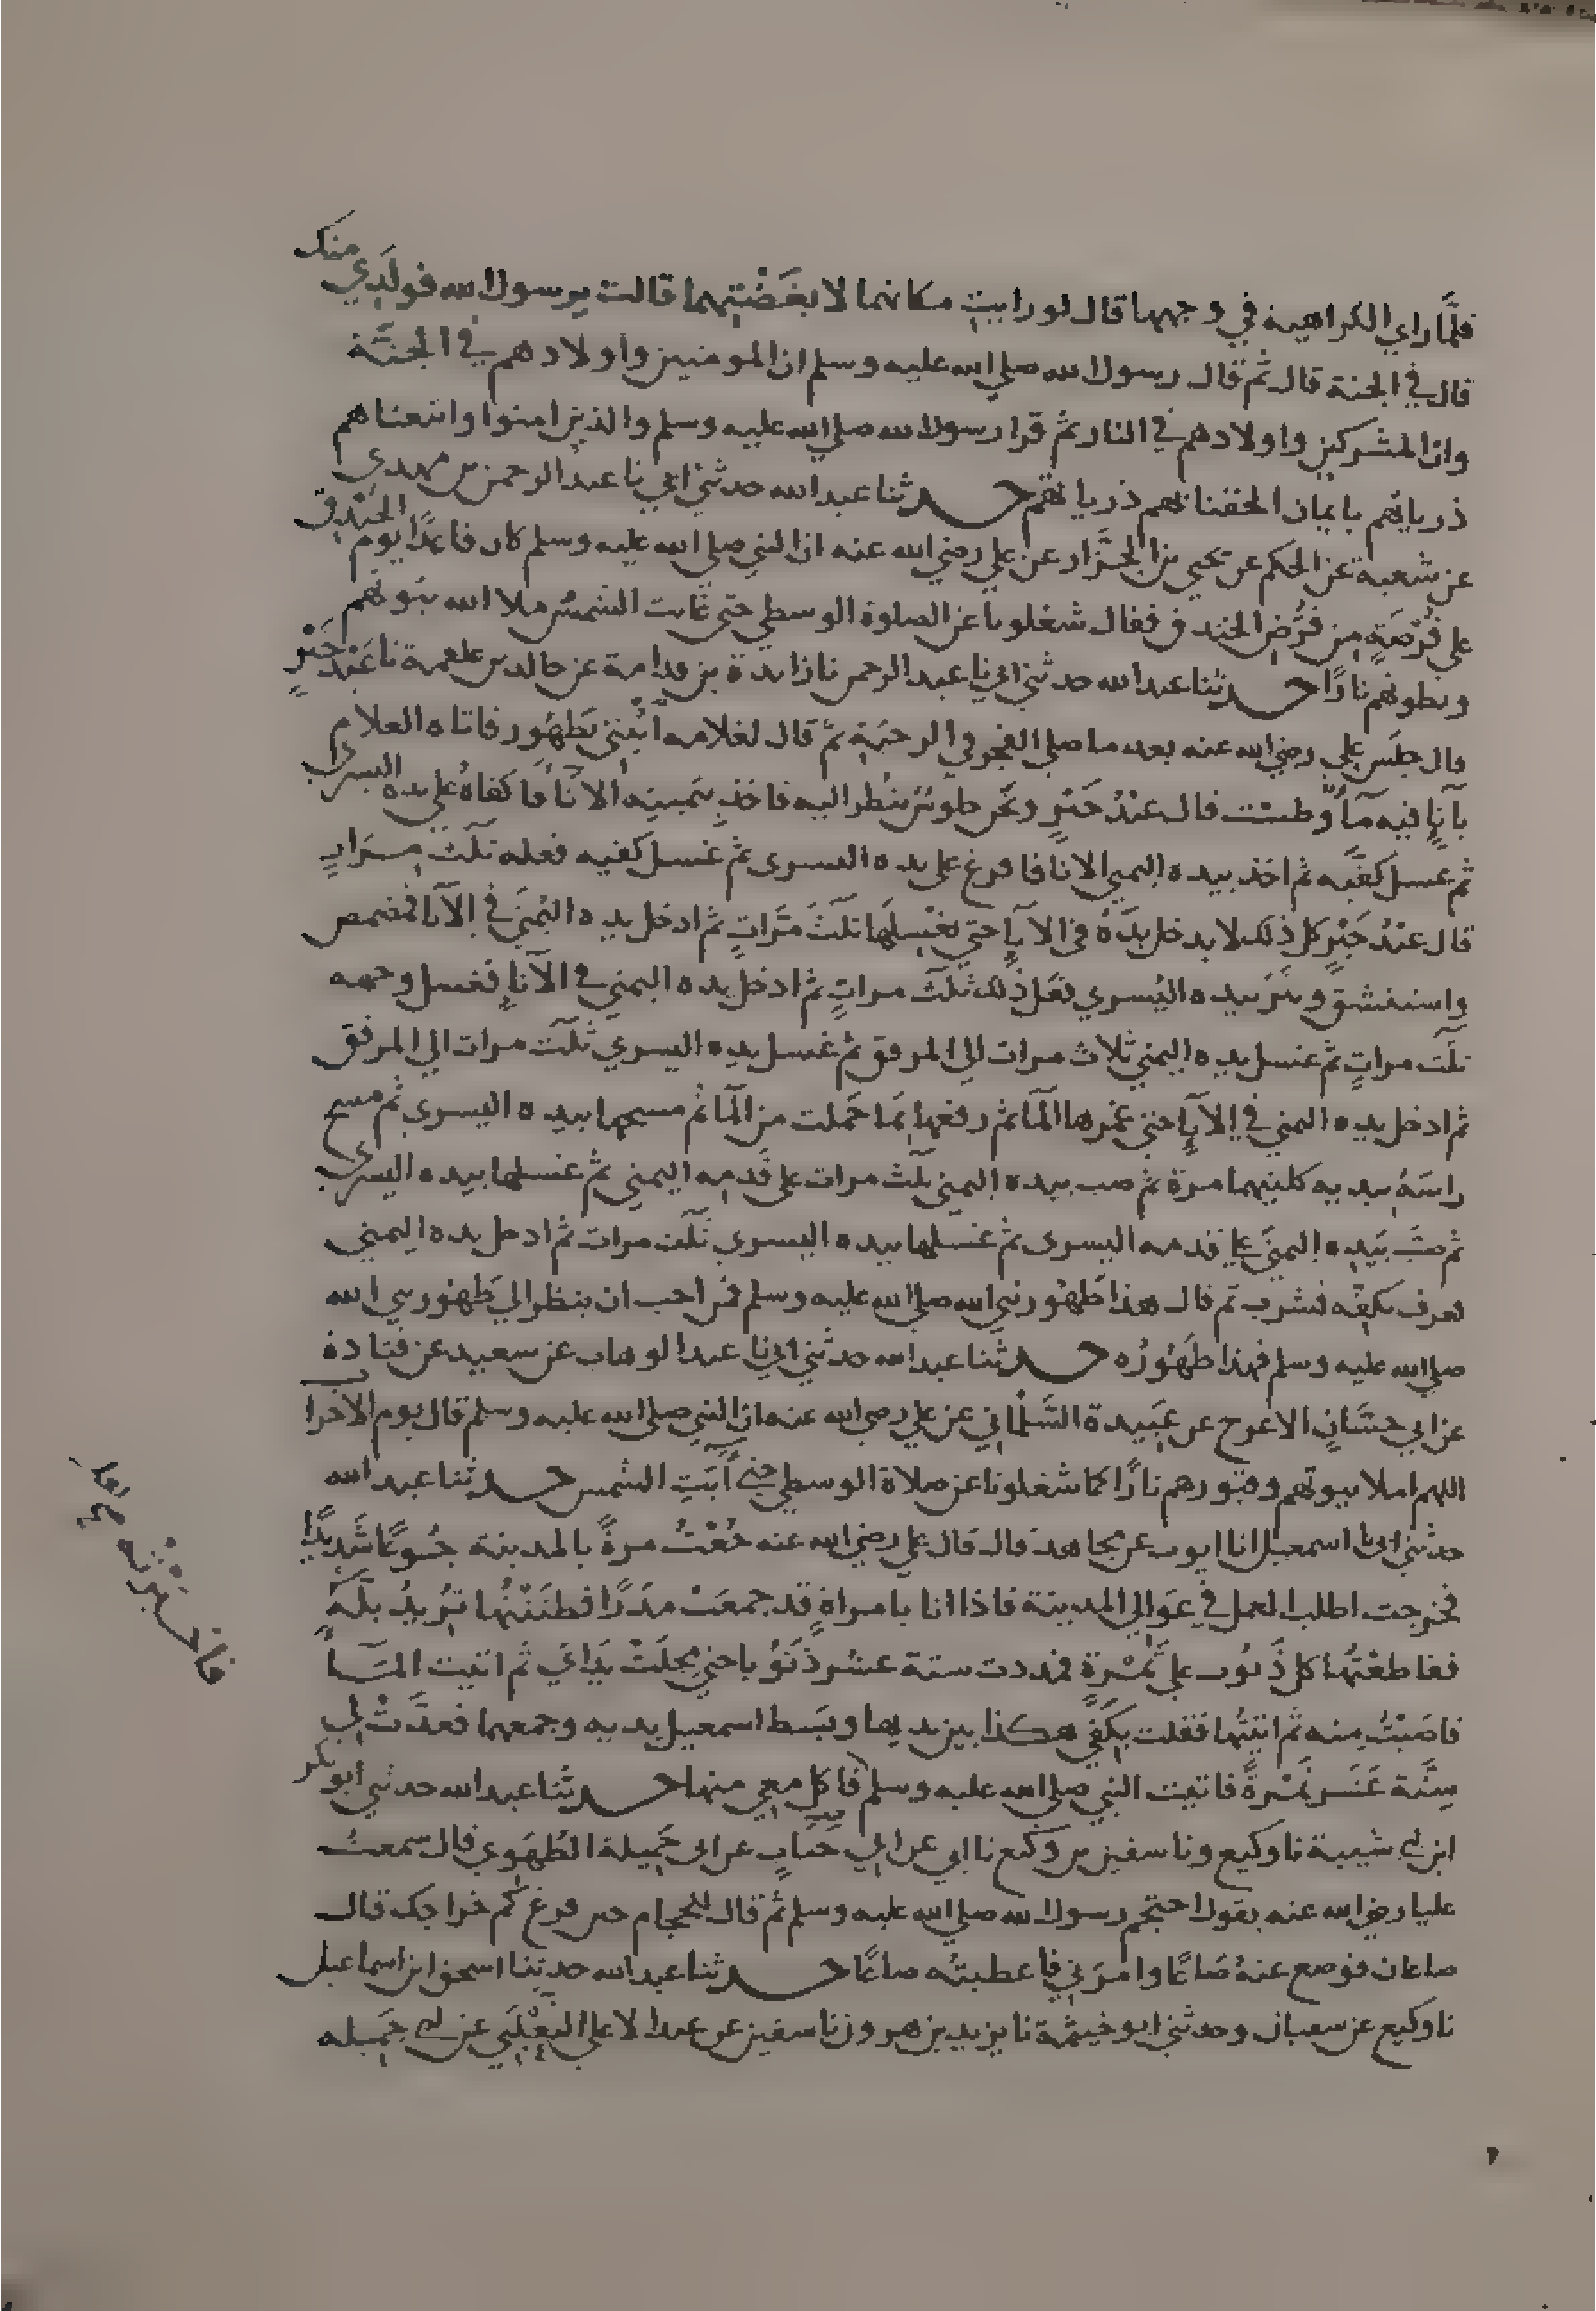 فلمَّا راي الكراهية في وجهها قال لو رايتِ مكانهما لابغَضْتِهما قالت يرسول الله فولَدِي منك
قال في الجنة قال ثم قال رسول الله صلي الله عليه وسلم ان المومنين واولادهم في الجنَّة
وان المشركين واولادهم في النار ثم قرا رسول الله صلي الله عليه وسلم والذين امنوا واتبعناهم
ذرياتهم بايمان الحقنا بهم ذرياتهم حدثنا عبد الله حدثني ابي نا عبد الرحمن بن مهدي
عن شعبة عن الحكم عن يحيي بن الجزَّار عن علي رضي الله عنه ان النبي صلي الله عليه وسلم كان قاعدًا يوم الخندق
علي فُرْضَةٍ من فُرَضِ الخندق فقال شغلونا عن الصلوة الوسطي حتي غابت الشمس ملا الله بيوتهم
وبطونهم نارًا حدثنا عبد الله حدثني ابي نا عبد الرحمن نا زايدة بن قدامة عن خالد بن علقمة نا عَبْد خَيْرٍ
قال جلَس علي رضي الله عنه بعد ما صلي الفجر في الرحَبَةِ ثم قال لغلامه ائْتِني بطَهُور فاتاه الغلام
بآنإٍ فيه مآءٌ وطست قال عبْدُ خَيْرٍ ونحن جلوسٌ ننظر اليه فاخذ بيَمينه الانآ فاكفاهُ علي يده اليسري
ثم غسل كفَّيه ثم اخذ بيده اليمني الانا فافرغ علي يده اليسري ثم غسل كفيه فعله ثلَثَ مِرَارٍ
قال عبْدُ خَيْرٍ كل ذلك لا يدخل يدَهُ في الانآءِ حتي يغْسِلَها ثلَثَ مَرَّاتٍ ثم ادخل يده اليُمنَي في الانآ فمضمض
واستنشق ونثَر بيده اليُسري فعَل ذلك ثلَثَ مراتٍ ثم ادخل يده اليمني في الانآءِ فغسل وجهه
ثلَثَ مراتٍ ثم غسل يده اليمني ثلاث مرات الي المرفق ثم غسل يده اليسري ثلَثَ مرات الي المرفق
ثم ادخل يده اليمني في الانآءِ حتي غمرها المآ ثم رفعها بما حَملت من المآ ثم مسحها بيده اليسري ثم مسح
راسَهُ بيديه كلتيهما مرة ثم صب بيده اليمني ثلَثَ مرات علي قَدمه اليمني ثم غسلها بيده اليسري
ثم صَبَّ بيَدِه اليمنَي علي قدمه اليسري ثم غسَلها بيده اليسري ثلَثَ مرات ثم ادخل يده اليمني
فغرف بكفِّه فشرب ثم قال هذا طَهُور نبي الله صلي الله عليه وسلم فمن احب ان ينظر الي طَهُور نبي الله
صلي الله عليه وسلم فهذا طَهُورُه حدثنا عبد الله حدثني ابي نا عبد الوهاب عن سعيد عن قتادة
عن ابي حسَّانٍ الاعرج عن عَبِيدة السَّلْماني عن علي رضي الله عنه ان النبي صلي الله عليه وسلم قال يوم الاحزاب
اللهم املا بيوتهم وقبورهم نارًا كما شغلونا عن صلاة الوسطي حتي آبَتِ الشمس حدثنا عبد الله
حدثني ابي نا اسمعيل انا ايوب عن مجاهد قال قال علي رضي الله عنه جُعْتُ مرةً بالمدينة جُوعًا شَديدًا
فخرجت اطلب العمل في عوَالي المدينة فاذا انا بامراةٍ قد جمعَتْ مدَرًا فظنَنْتُها تريدُ بلَّه
فقاطعْتُها كل ذَنوب علي تَمْرةٍ فمددت ستة عشر ذَنُوبا حتي مجلَتْ يدَايَ ثم اتيت المآءَ
فاصَبْتُ مِنه ثم اتيتُها فقلت بكَفَّيَّ هكذا بين يديها وبسَط اسمعيل يديه وجمعهما فعدَّتْ لي
سِتَّة عَشَر تَمْرةً فاتيت النبي صلي الله عليه وسلم فاكل معي منها حدثنا عبد الله حدثني ابو بكر
ابن ابي شيبة نا وكيع ونا سفين بن وكيع نا ابي عن ابي جنَابٍ عن ابي جَمِيلة الطُهَوي قال سمعتُ
عليا رضي الله عنه يقول احتجم رسول الله صلي الله عليه وسلم ثم قال للحجام حين فرغ كم خراجك قال
صاعان فوضع عنهُ صَاعًا وامرَني فاعطيتُه صاعًا حدثنا عبد الله حدثنا اسحق ابن اسماعيل
نا وكيع عن سفيان وحدثني ابو خيثمة نا يزيد بن هرون نا سفين عن عبد الاعلي الثعْلَبَي عن ابي جَمِيله
فاخبرْتُه